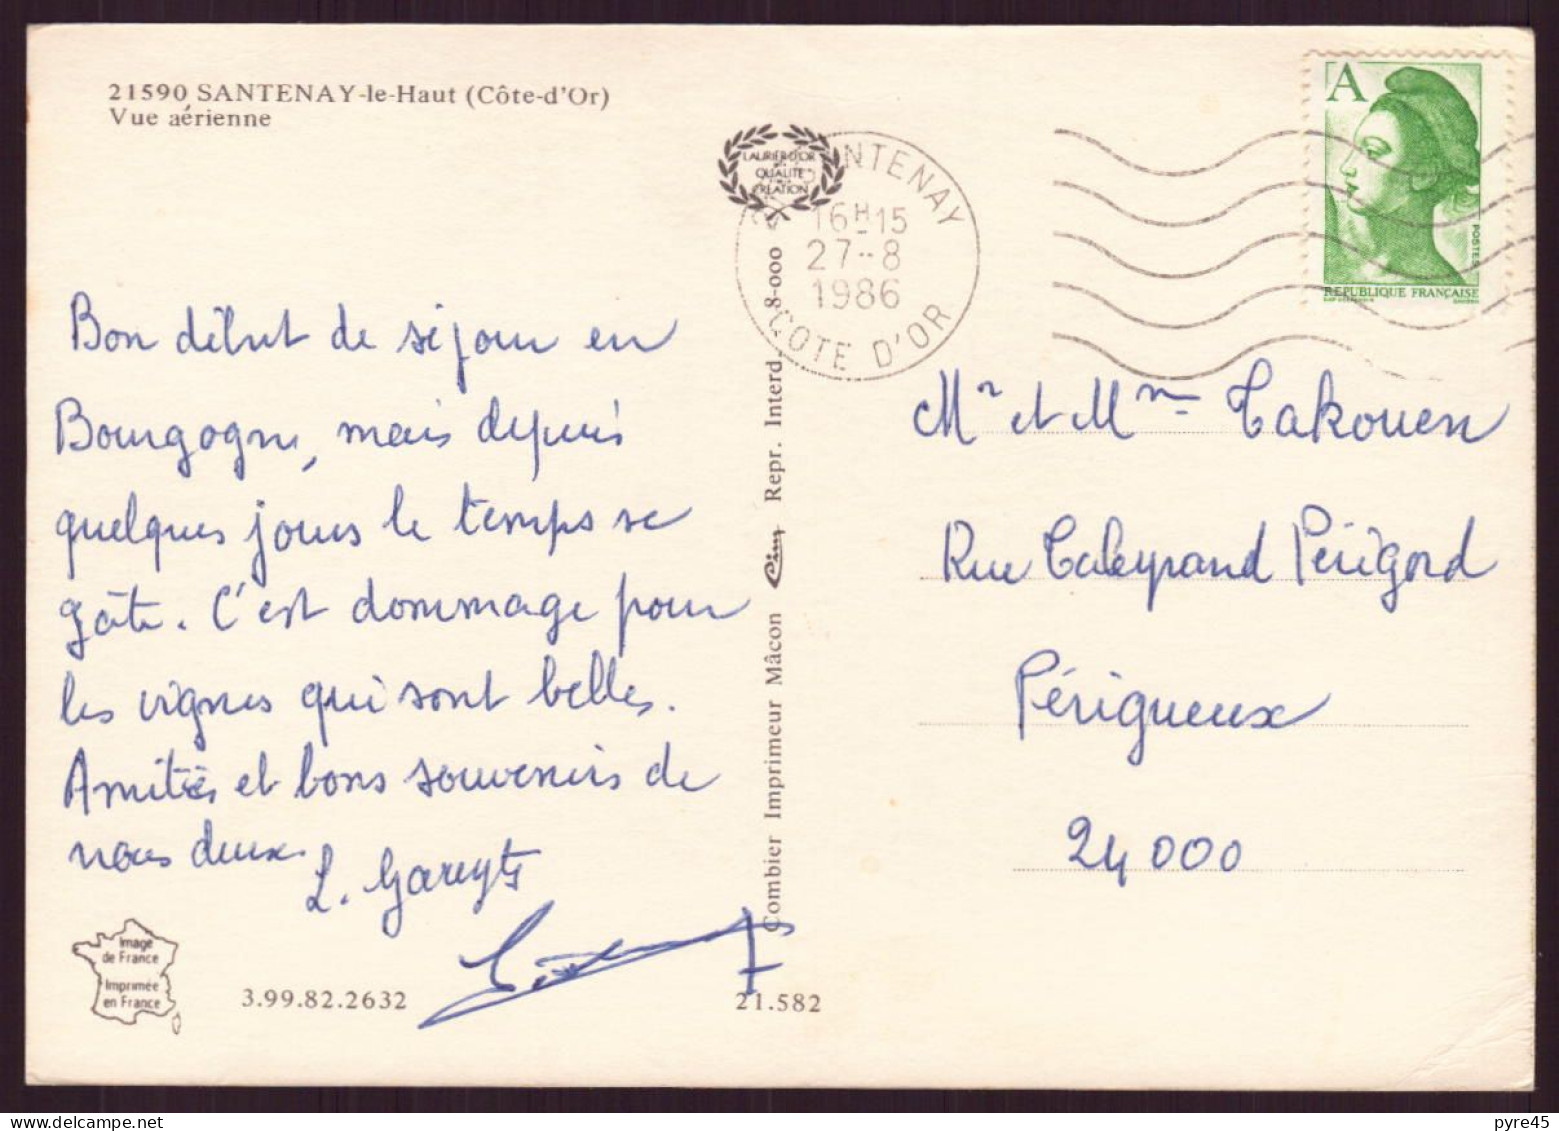 21590 SANTENAY-le-Haut (Côte-d'Or)
Vue aérienne
Bon début de séjour en
Bourgogne, mais depuis
quelques jours le temps se
gâte. C'est dommage pour
les vignes qui sont belles.
Amitiés et bons souvenirs de
nous deux.
Image
de France
Imprimée
en France
3.99.82.2632
21.582
Combier Imprimeur Mâcon Cim Repr. Interd. 8-000
LAURIER D'OR
QUALITÉ
CRÉATION
SANTENAY
16H15
27-8
1986
COTE D'OR
A
POSTES
REPUBLIQUE FRANÇAISE
Mr et Mme Takouen
Rue Taleyrand Périgord
Périgueux
24000
pyre45